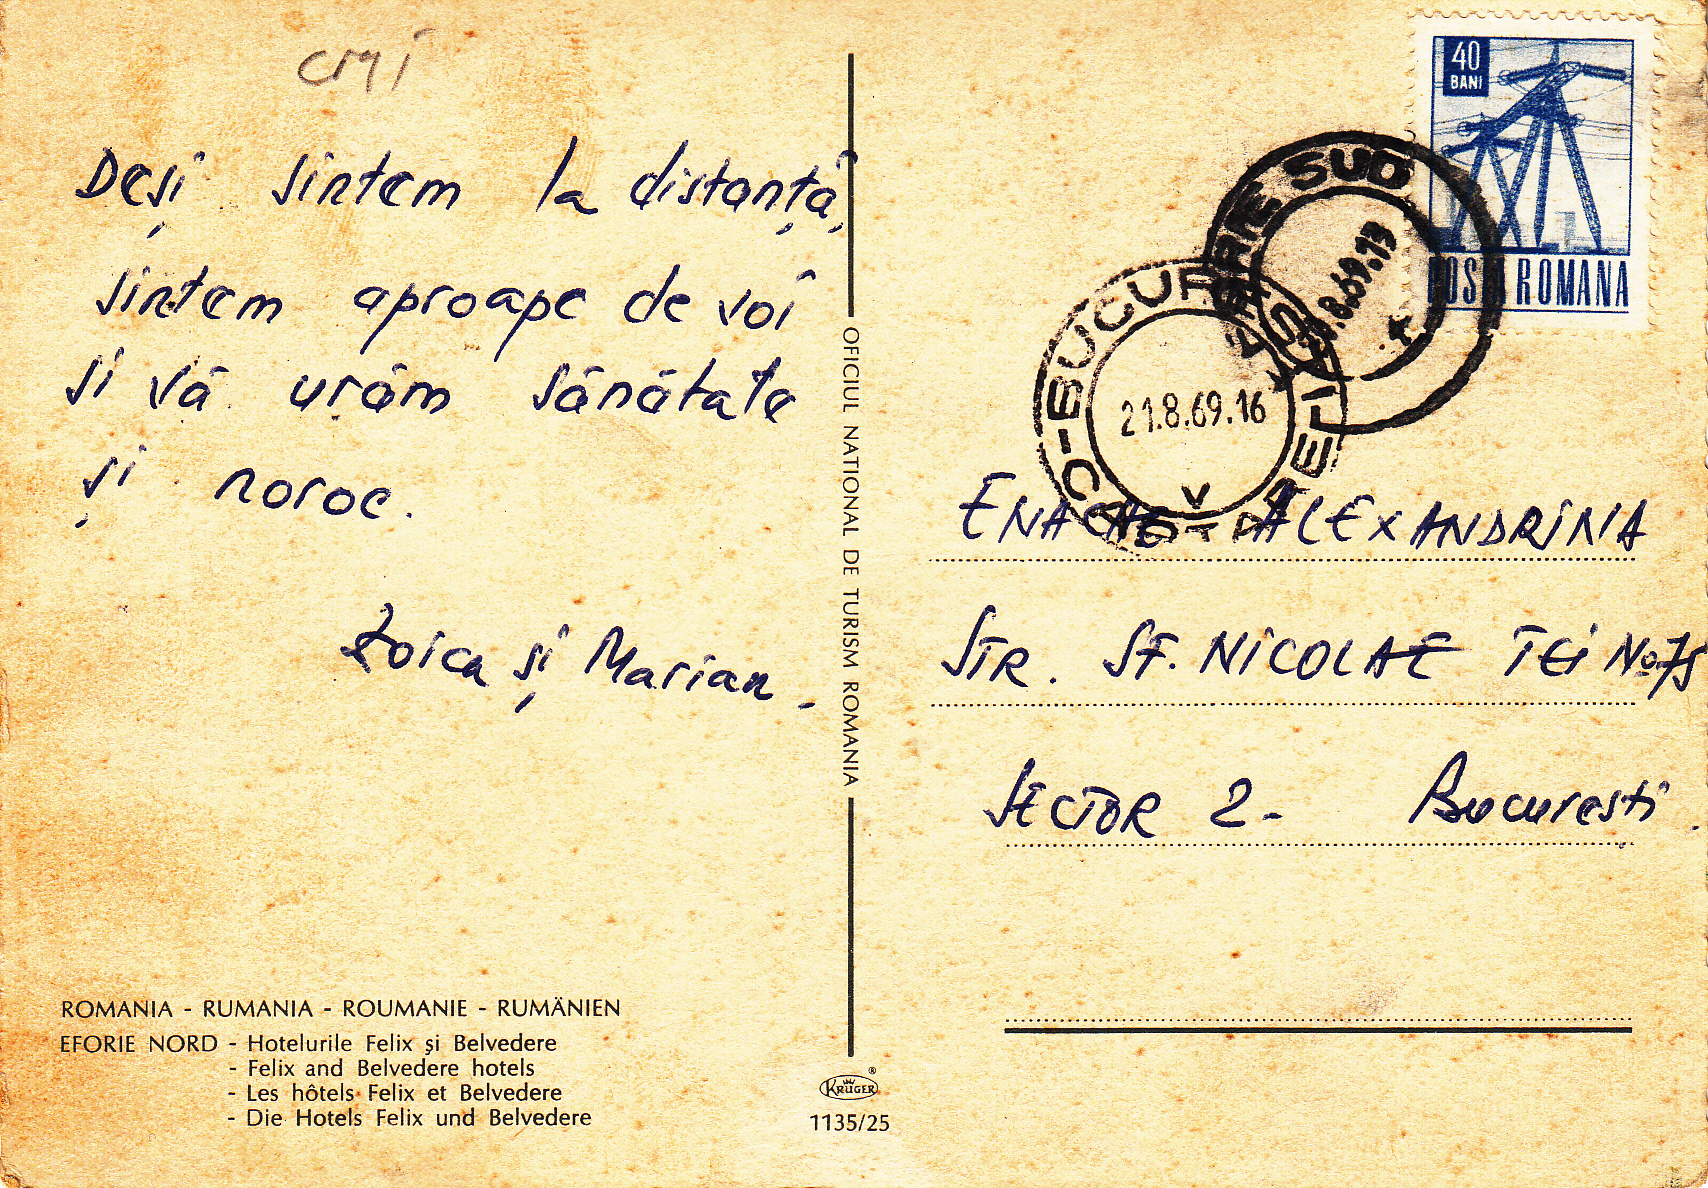 CMI
Deși sintem la distanță,
sintem aproape de voi
și vă urăm sănătate
și noroc.
Zoica și Marian.
OFICIUL NATIONAL DE TURISM ROMANIA
ROMANIA - RUMANIA - ROUMANIE - RUMÄNIEN
EFORIE NORD - Hotelurile Felix şi Belvedere
- Felix and Belvedere hotels
- Les hôtels Felix et Belvedere
- Die Hotels Felix und Belvedere
KRÜGER®
1135/25
40
BANI
POSTA ROMANA
EFORIE SUD
.8.69.13
BUCUREȘTI
21.8.69.16
V
ENACHE ALEXANDRINA
STR. SF. NICOLAE TEI No 75
SECTOR 2 - Bucuresti.